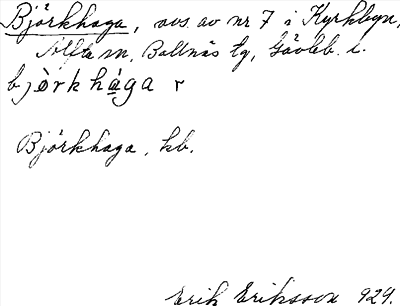 Björkhaga, avs. av nr 7 i Kyrkbyn,
Alfta sn, Bollnäs tg, Gävleb. l.
bjòrkhága r
Björkhaga, kb.
Erik Eriksson 924.